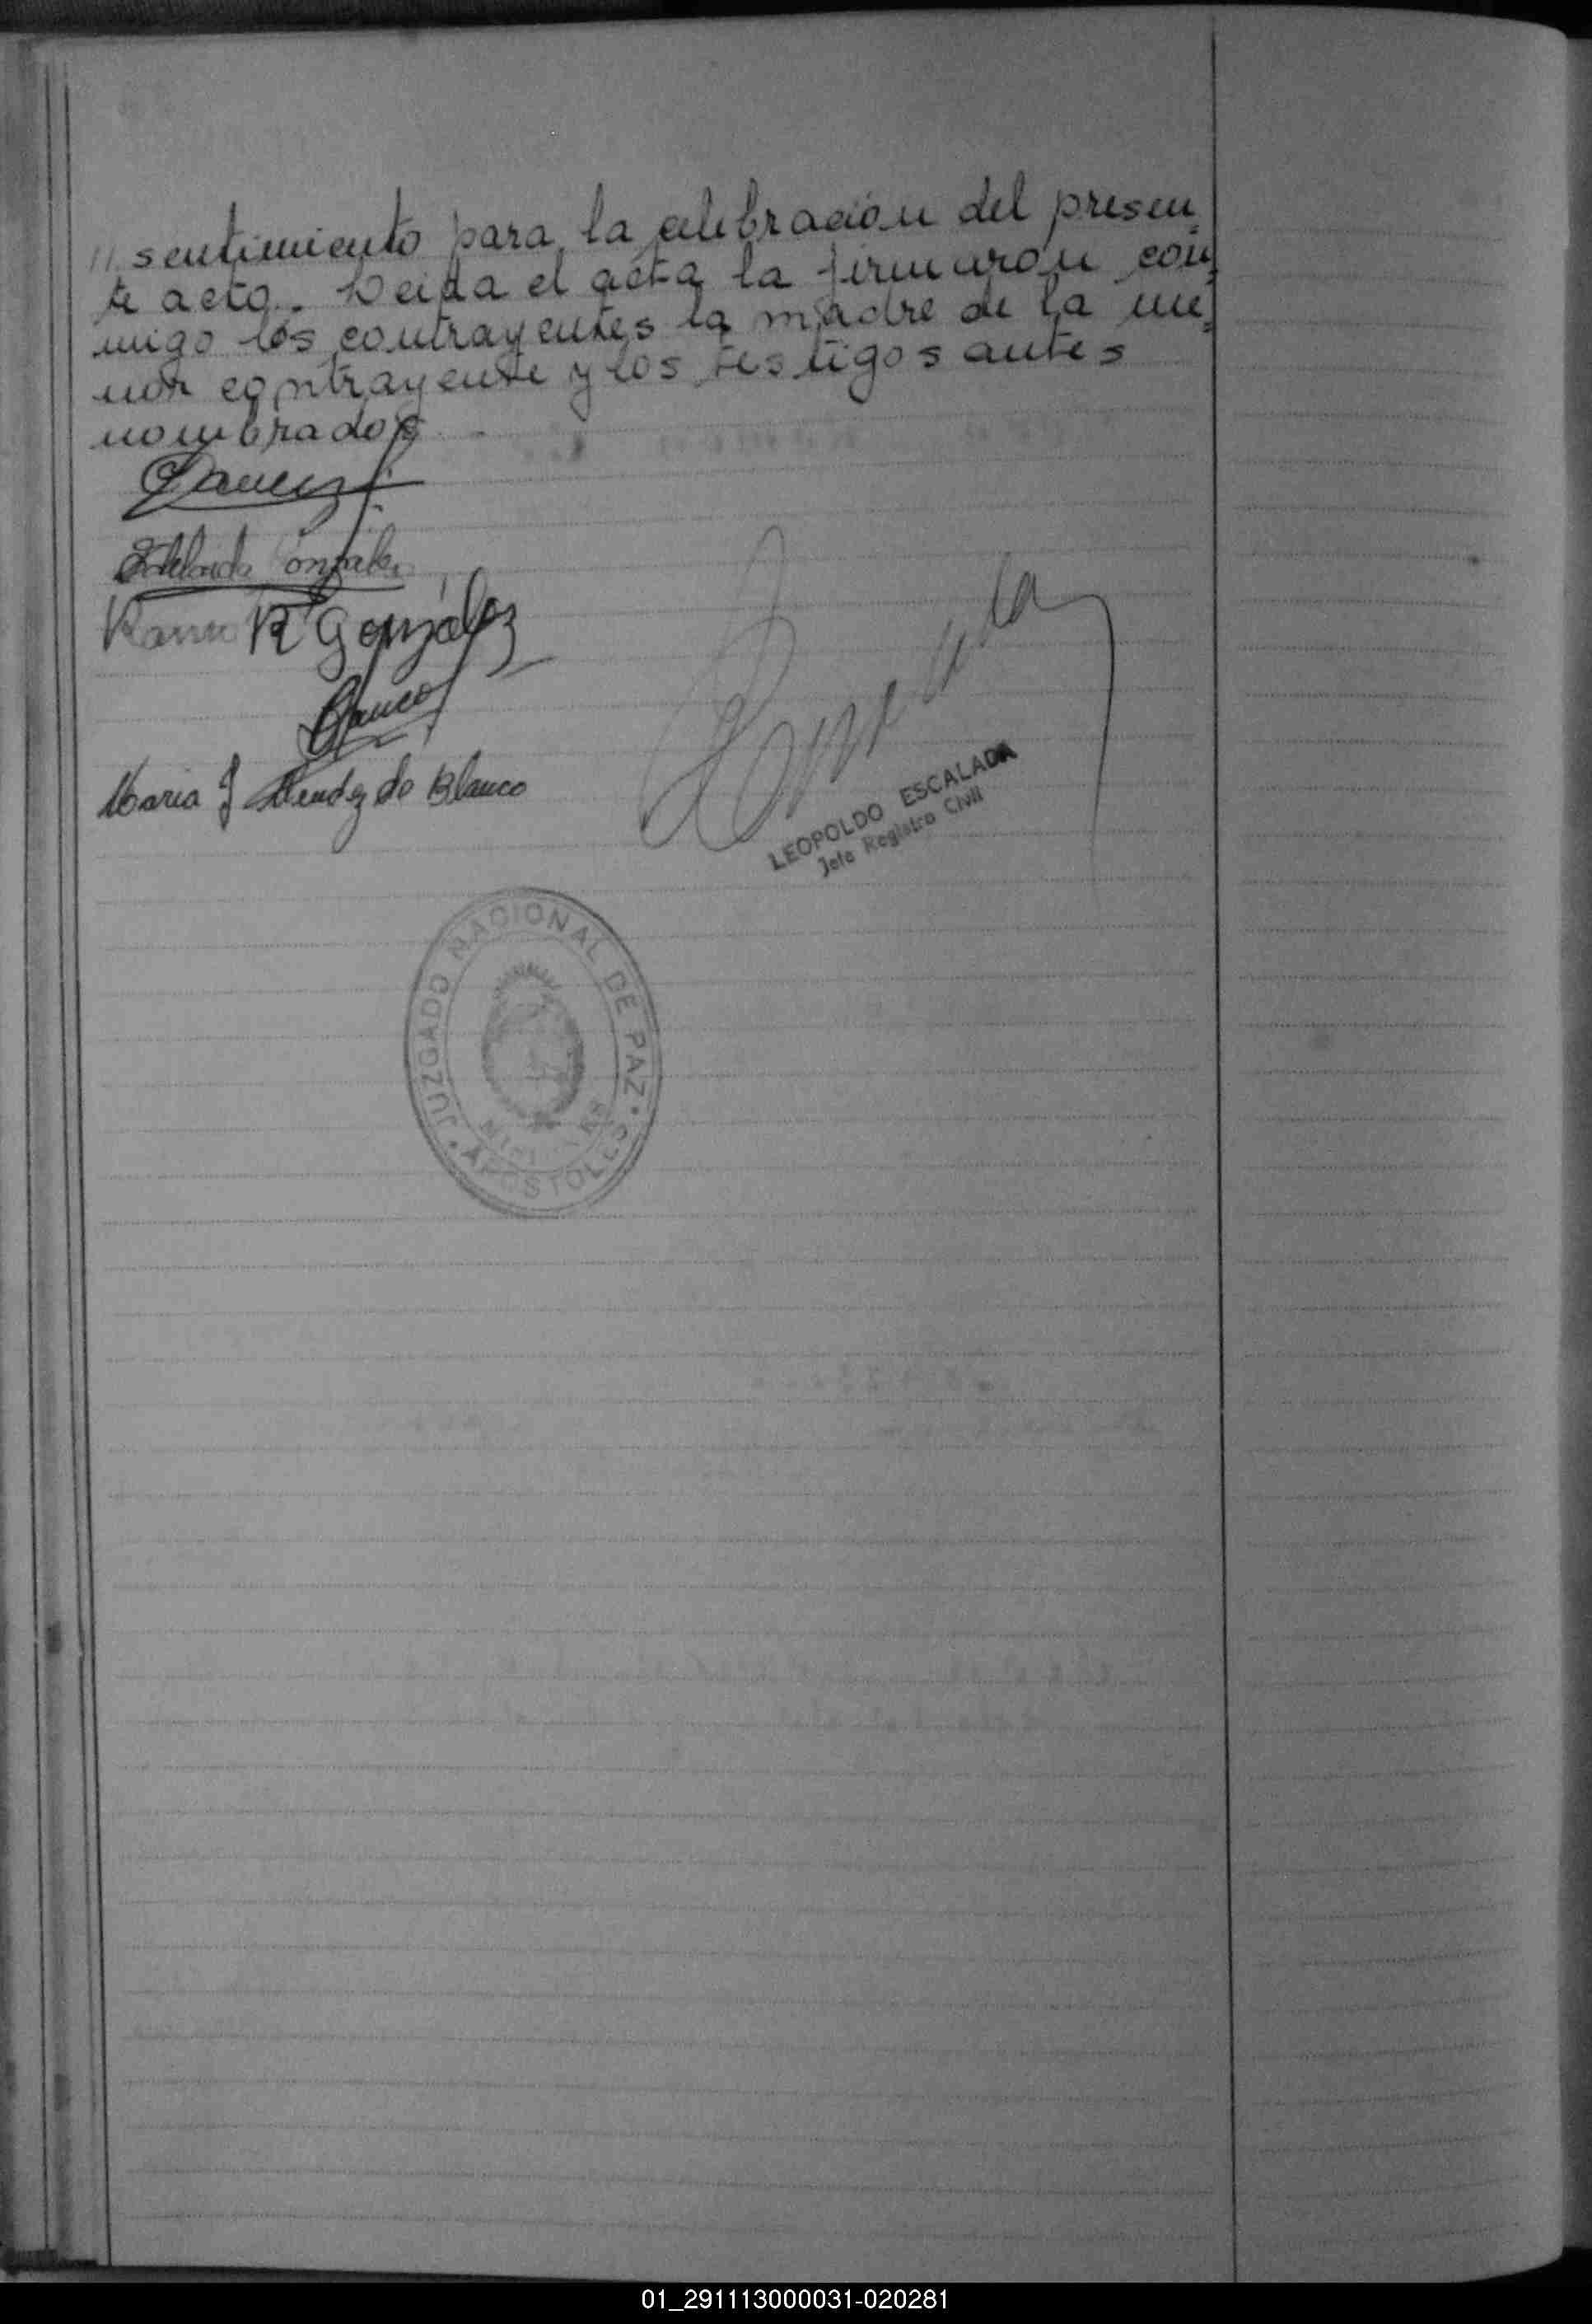 // sentimiento para la celebración del presen=
te acto. Leida el acta la firmaron con=
migo los contrayentes la madre de la me=
nor contrayente y los testigos antes
nombrados
Gonzalez
Ramon R González
Blanco
Maria J Mendez de Blanco
LEOPOLDO ESCALADA
Jefe Registro Civil
JUZGADO NACIONAL DE PAZ
MISIONES
APOSTOLES
01_291113000031-020281